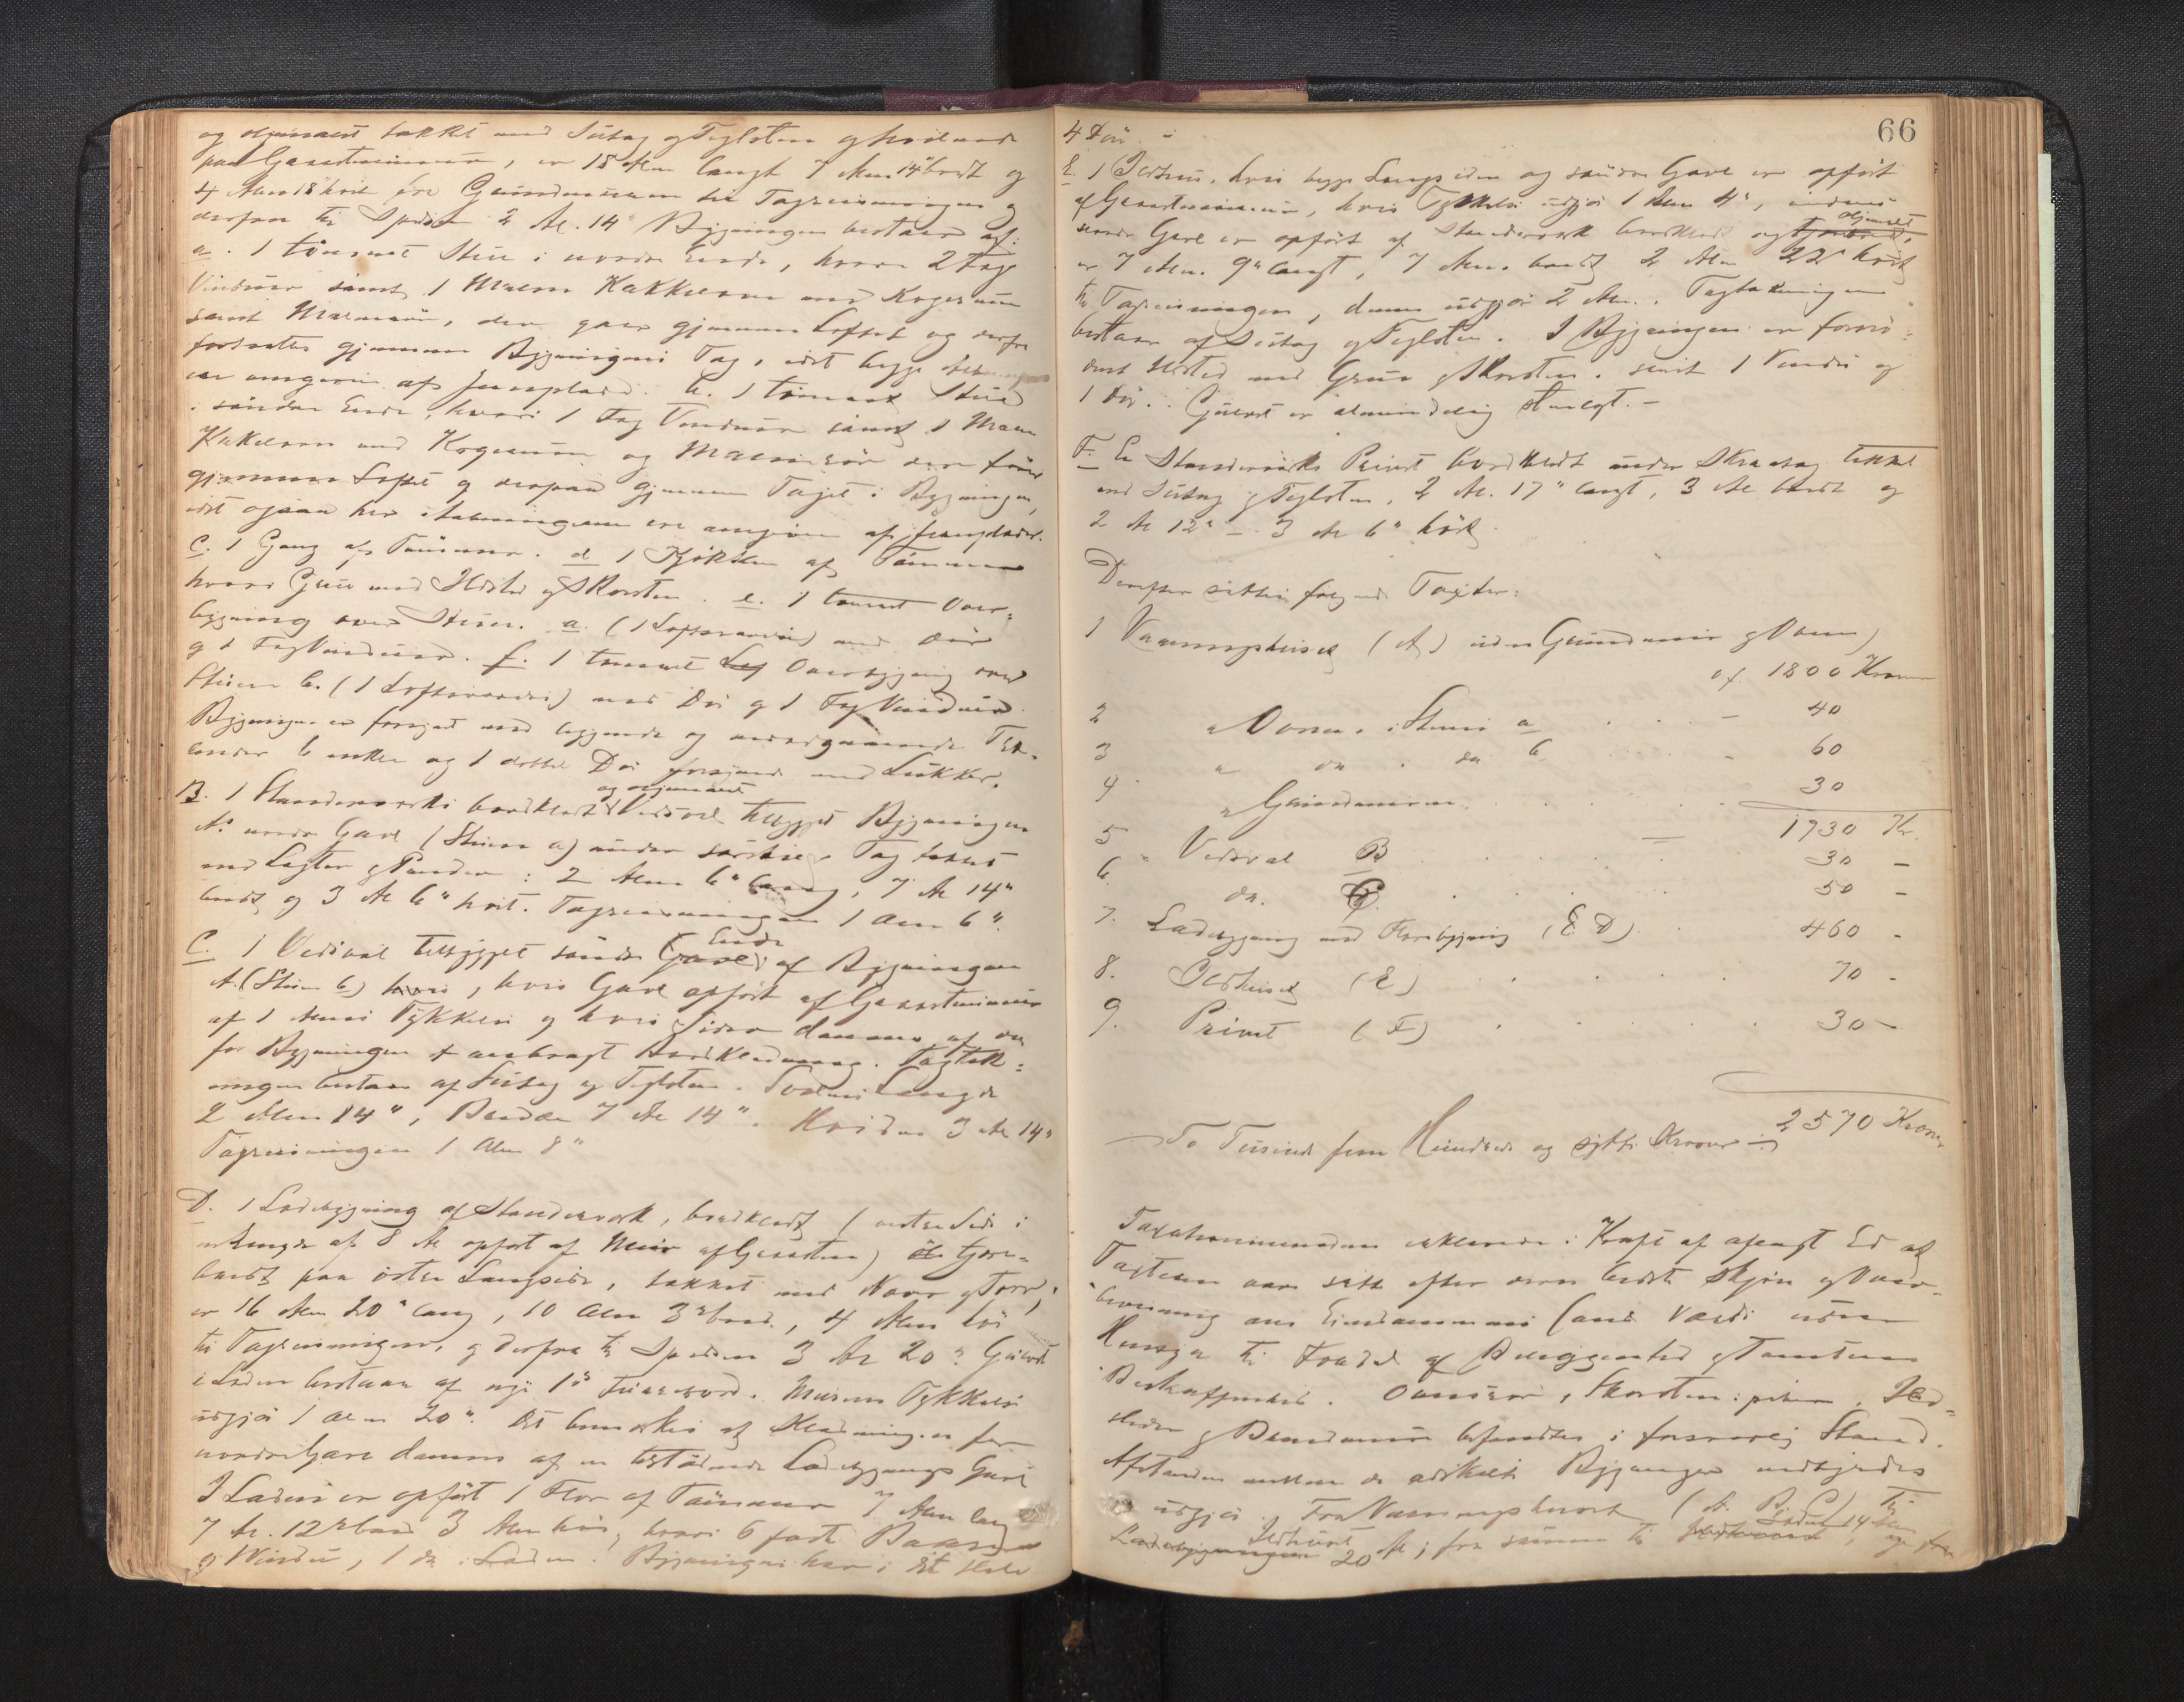 og oljemalt takket med Sutag og Teglsten og hvilende
paa Graastensmuur, er 15 Alen langt 7 Alen 14" bredt og
4 Alen 18" høit fra Grundmuren til Tagreisningen og
derfra til Spidsen 2 Al. 14" Bygningen bestaar af:
a. 1 tømret Stue i nordre Ende, hvori 2 Fag
Vinduer samt 1 Kakkelovn med Kogerum
samt, der gaar gjennem Loftet og derfra
fortsættes gjennem Bygningens Tag, idet begge
ere omgivne af Jernplader. b. 1 tømret Stue
i søndre Ende, hvori 1 Fag Vinduer samt 1
Kakelovn med Kogerum og der fører
gjennem Loftet og derpaa gjennem Taget i Bygningen,
idet ogsaa her Aabningerne ere omgivne af Jernplader.
c. 1 Gang af Tømmer. d 1 Kjøkken af Tømmer
hvori Grue med Ildsted og Skorsten. e. 1 tømret Over=
bygning over Stuen a. (1 Loftsværelse) med Dør
og 1 Fag Vinduer. f. 1 tømret Overbygning over
Stuen b. (1 Loftsværelse) med Dør og 1 Fag Vinduer.
Bygningen er forsynet med liggende og nedadgaaende
render 6 enkle og 1 dobbel Dør forsynede med Lukker.
B. 1 Standerværks bordklædt og oljemalet Vedsval tilbygget Bygningen
A.s nordre Gavl (Stuen a) under særskilt Tag tækket
med Lægter og Pander: 2 Alen 6" lang, 7 Al 14"
bredt og 3 Al 6" høit. Tagreisningen 1 Alen 6".
C. 1 Vedsval tilbygget søndre Gavl Ende af Bygningen
A. (Stuen b) hvori, hvis Gavl opført af Graastensmuur
af 1 Alens Tykkelse og hvis Sider dannes af den
for Bygningen A anbragt Bordklædning. Tagtæk=
ningen bestaar af Sutag og Teglsten. Svalens Længde
2 Alen 14", Bredde 7 Al 14". Høiden 3 Al 14"
Tagreisningen 1 Alen 8"
D. 1 Ladebygning af Standerværk, bordklædt (vestre Side i
en Længde af 8 Al opført af Muur af Graasten) tjære-
bredt paa østre Langside, tækket med Næver og Torv,
er 16 Alen 20" lang, 10 Alen 3" bred, 4 Alen høi
til Tagreisningen, og derfra til Spidsen 3 Al 20". Gulvet
i Laden bestaar af nye 1½" Furebord. Murens Tykkelse
udgjør 1 Alen 20". Det bemærkes at Klædningen for
nordre Gavl dannes af en tilstødende Ladebygnings Gavl
I Laden er opført 1 Flor af Tømmer 7 Alen lang
7 Al. 12" bred 3 Alen høi, hvori 6 faste Baase
og Vindu, 1 do i Laden. Bygningen har i det Hele
66
4 Dør. -
E. 1 Ildhus, hvis begge Langsider og søndre Gavl er opført
af Graastensmuur, hvis Tykkelse udgjør 1 Alen 4",
nordre Gavl er opført af Standerværk bordklædt og tjærebredt, oljemalet
er 7 Alen. 9" langt, 7 Alen bredt 2 Alen 22" høit
til Tagreisningen, denne udgjør 2 Alen. Tagtækningen
bestaar af Sutag og Teglsten. I Bygningen er forsvar=
Ildsted med Grue og Skorsten. samt 1 Vindu og
1 Dør. Gulvet er almindelig Stenlagt. -
F. Et Standerværks Privet bordklædt under Skraatag tækket
med Sutag og Teglsten, 2 Al. 17" langt, 3 Al bredt og
2 Al 12" - 3 Al 6" høit
Derefter sættes følgende Taxter:
1 Vaaningshuset (A) uden Grundmuur og Ovne
1800 Kroner
2 " Ovnen i Stuen a . . . - 40
3 " do . do b . . . - 60
4 " Grundmuren . . . 30
1930 Kr.
5 " Vedsval B . . . 30 -
6. do. C. . . . 50 -
7. Ladebygning med Florbygning (D) . 460 -
8. Ildhuset (E) . . . 70 -
9. Privet (F) . . . 30 -
2570 Kroner
To Tusinde fem Hundrede og sytti Kroner
Taxationsmændene erklærede i Kraft af aflagt Ed at
Taxterne ere satte efter deres bedste Skjøn og Over-
bevisning om Eiendommens sande Værdi uden
Hensyn til Fordel af Beliggenhed og Tomtens
Beskaffenhed. Ovnsrør, Skorstenspiber, Ild-
steder og Brandmure befandtes i forsvarlig Stand.
Afstanden mellem de adskilte Bygninger
udgjør. Fra Vaaningshuset (A. B. C) til
Ladebygningen Ildhuset 20 Al; fra samme til Laden 14 Alen